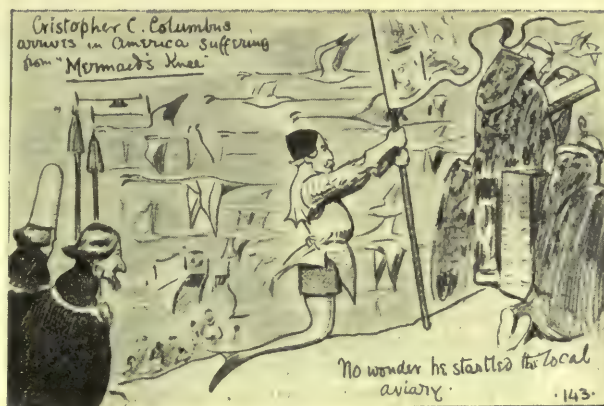 Cristopher C. Columbus
arrives in America suffering
from "Mermaid's Knee"
No wonder he startled the local
aviary.
·143·